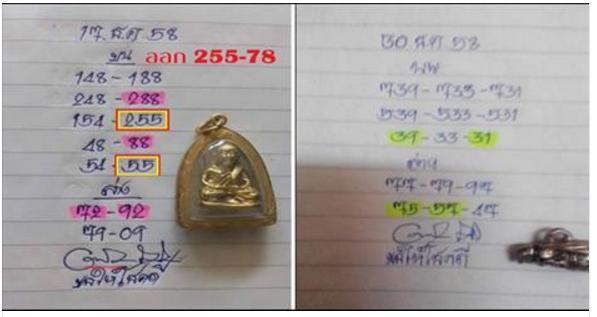 17 ส.ค 58
บน ลอก 255-78
148-188
248-288
154-255
48-88
54-55
ล่าง
72-92
79-09
ขอให้โชคดี
30 ส.ค 58
บน
739-733-731
539-533-531
39-33-31
ล่าง
77-79-97
75-57-47
ขอให้โชคดี